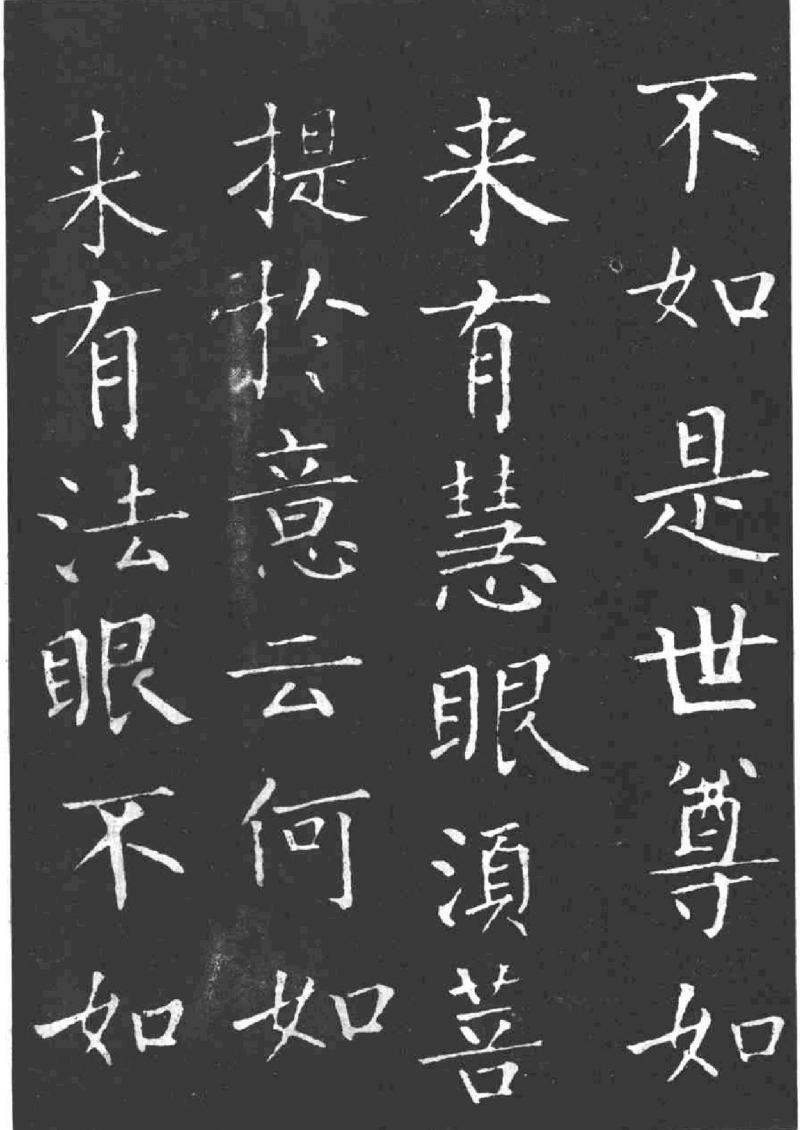 不如是世尊如
来有慧眼湏菩
提於意云何如
来有法眼不如